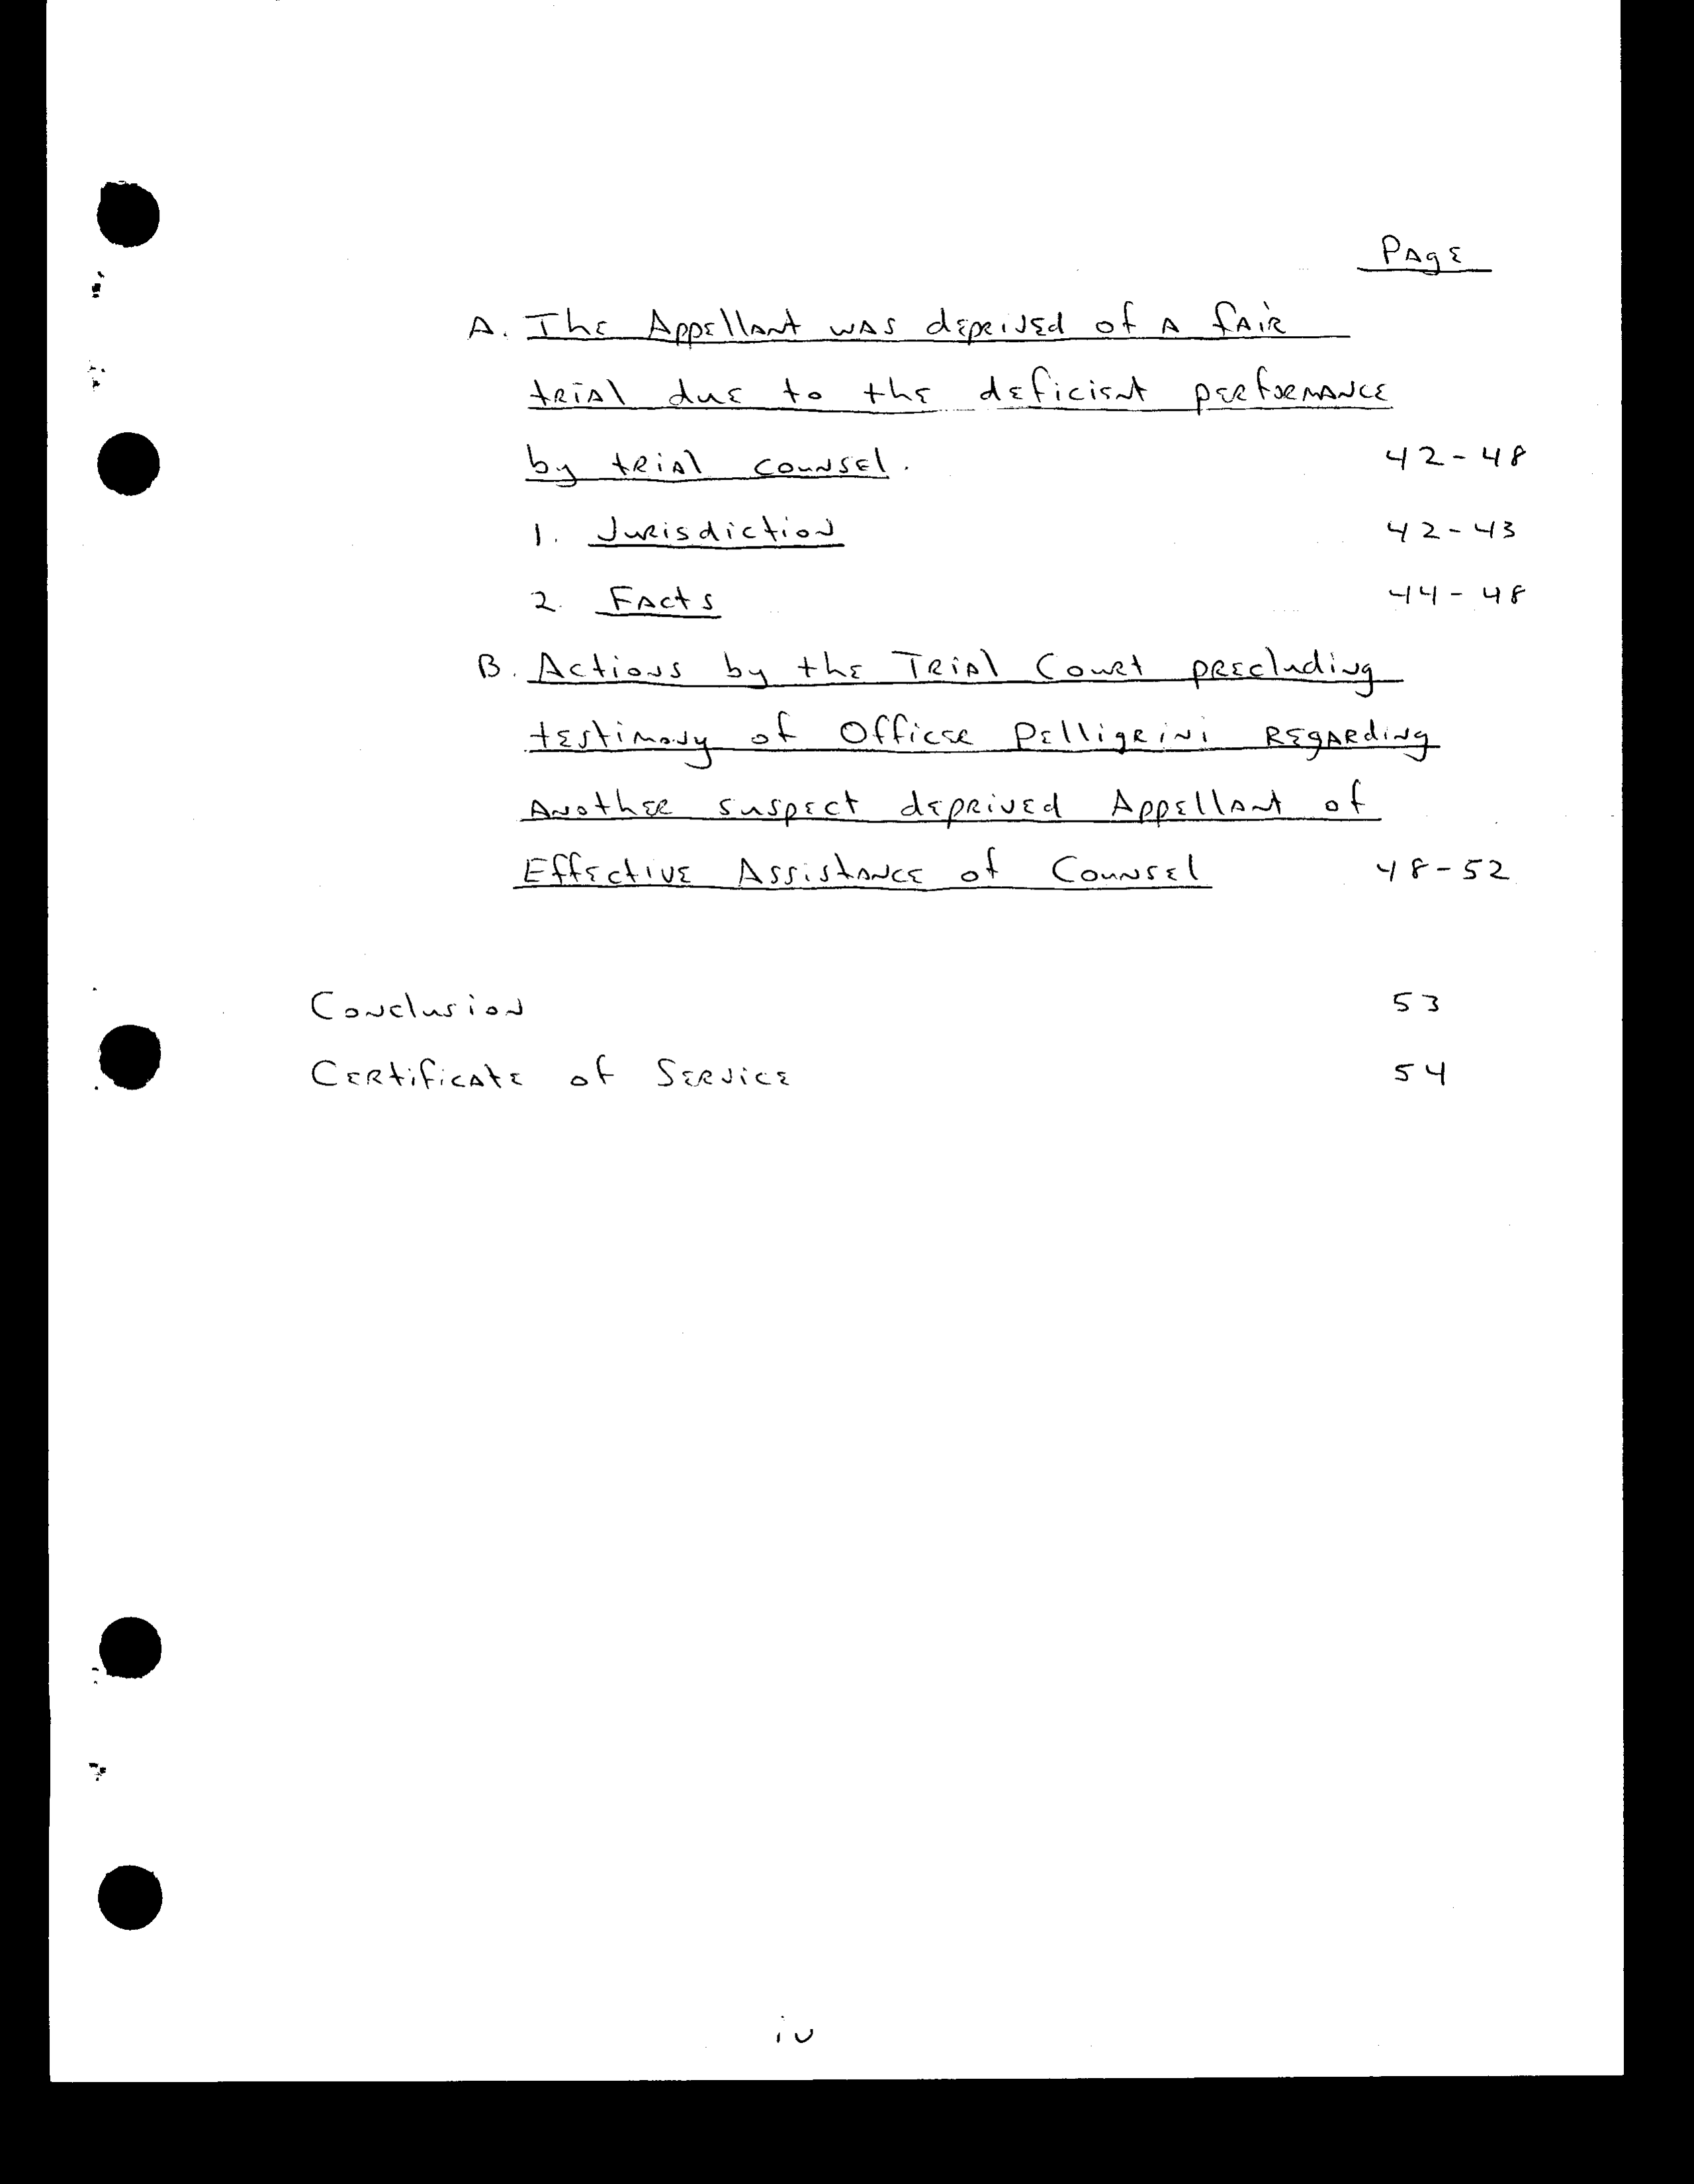 Page
A. The Appellant was deprived of a fair
trial due to the deficient performance
by trial counsel. 42-48
1. Jurisdiction 42-43
2. Facts 44-48
B. Actions by the Trial Court precluding
testimony of Officer Pelligrini regarding
Another suspect deprived Appellant of
Effective Assistance of Counsel 48-52
Conclusion 53
Certificate of Service 54
iv